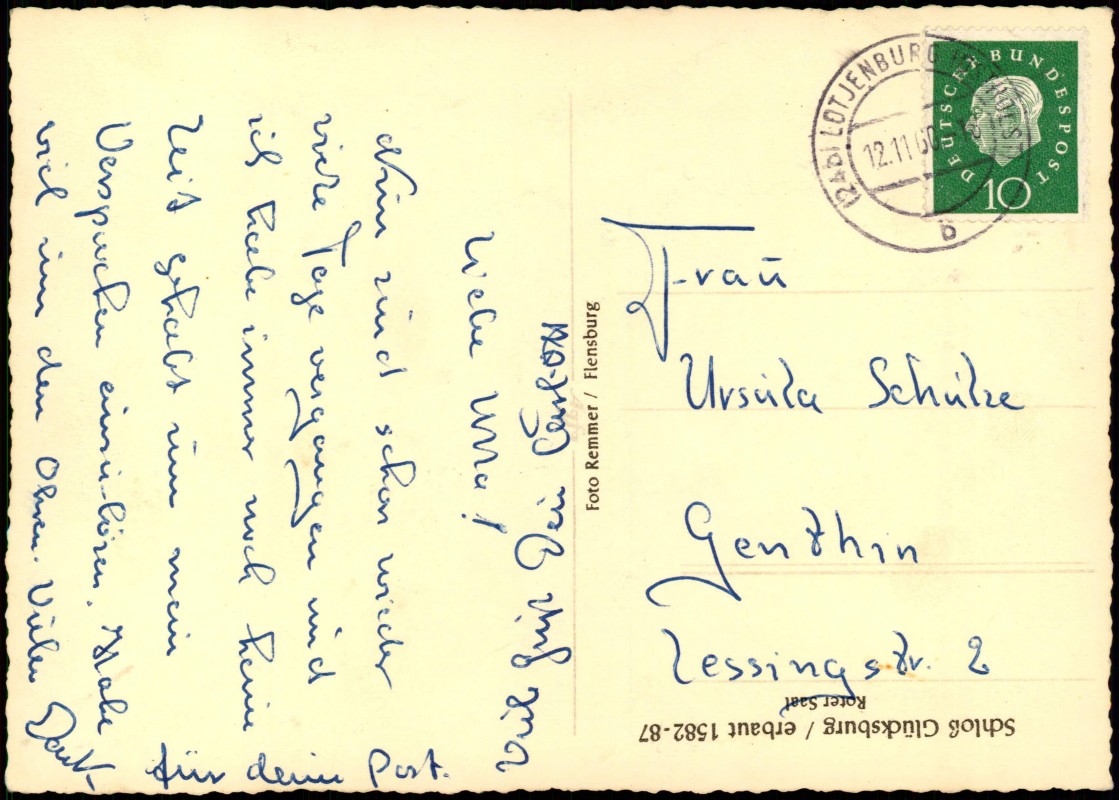 (24b) LÜTJENBURG
12.11.60
b
DEUTSCHE BUNDESPOST
10
Liebe Ulla!
Nun sind schon wieder
viele Tage vergangen und
ich habe immer noch keine
Zeit gehabt um mein
Versprechen einzulösen. Habe
viel um den Ohren. Vielen Dank
für deine Post.
Foto Remmer / Flensburg
Frau
Ursula Schulze
Genthin
Lessingstr. 2
Schloß Glücksburg / erbaut 1582-87
Roter Saal